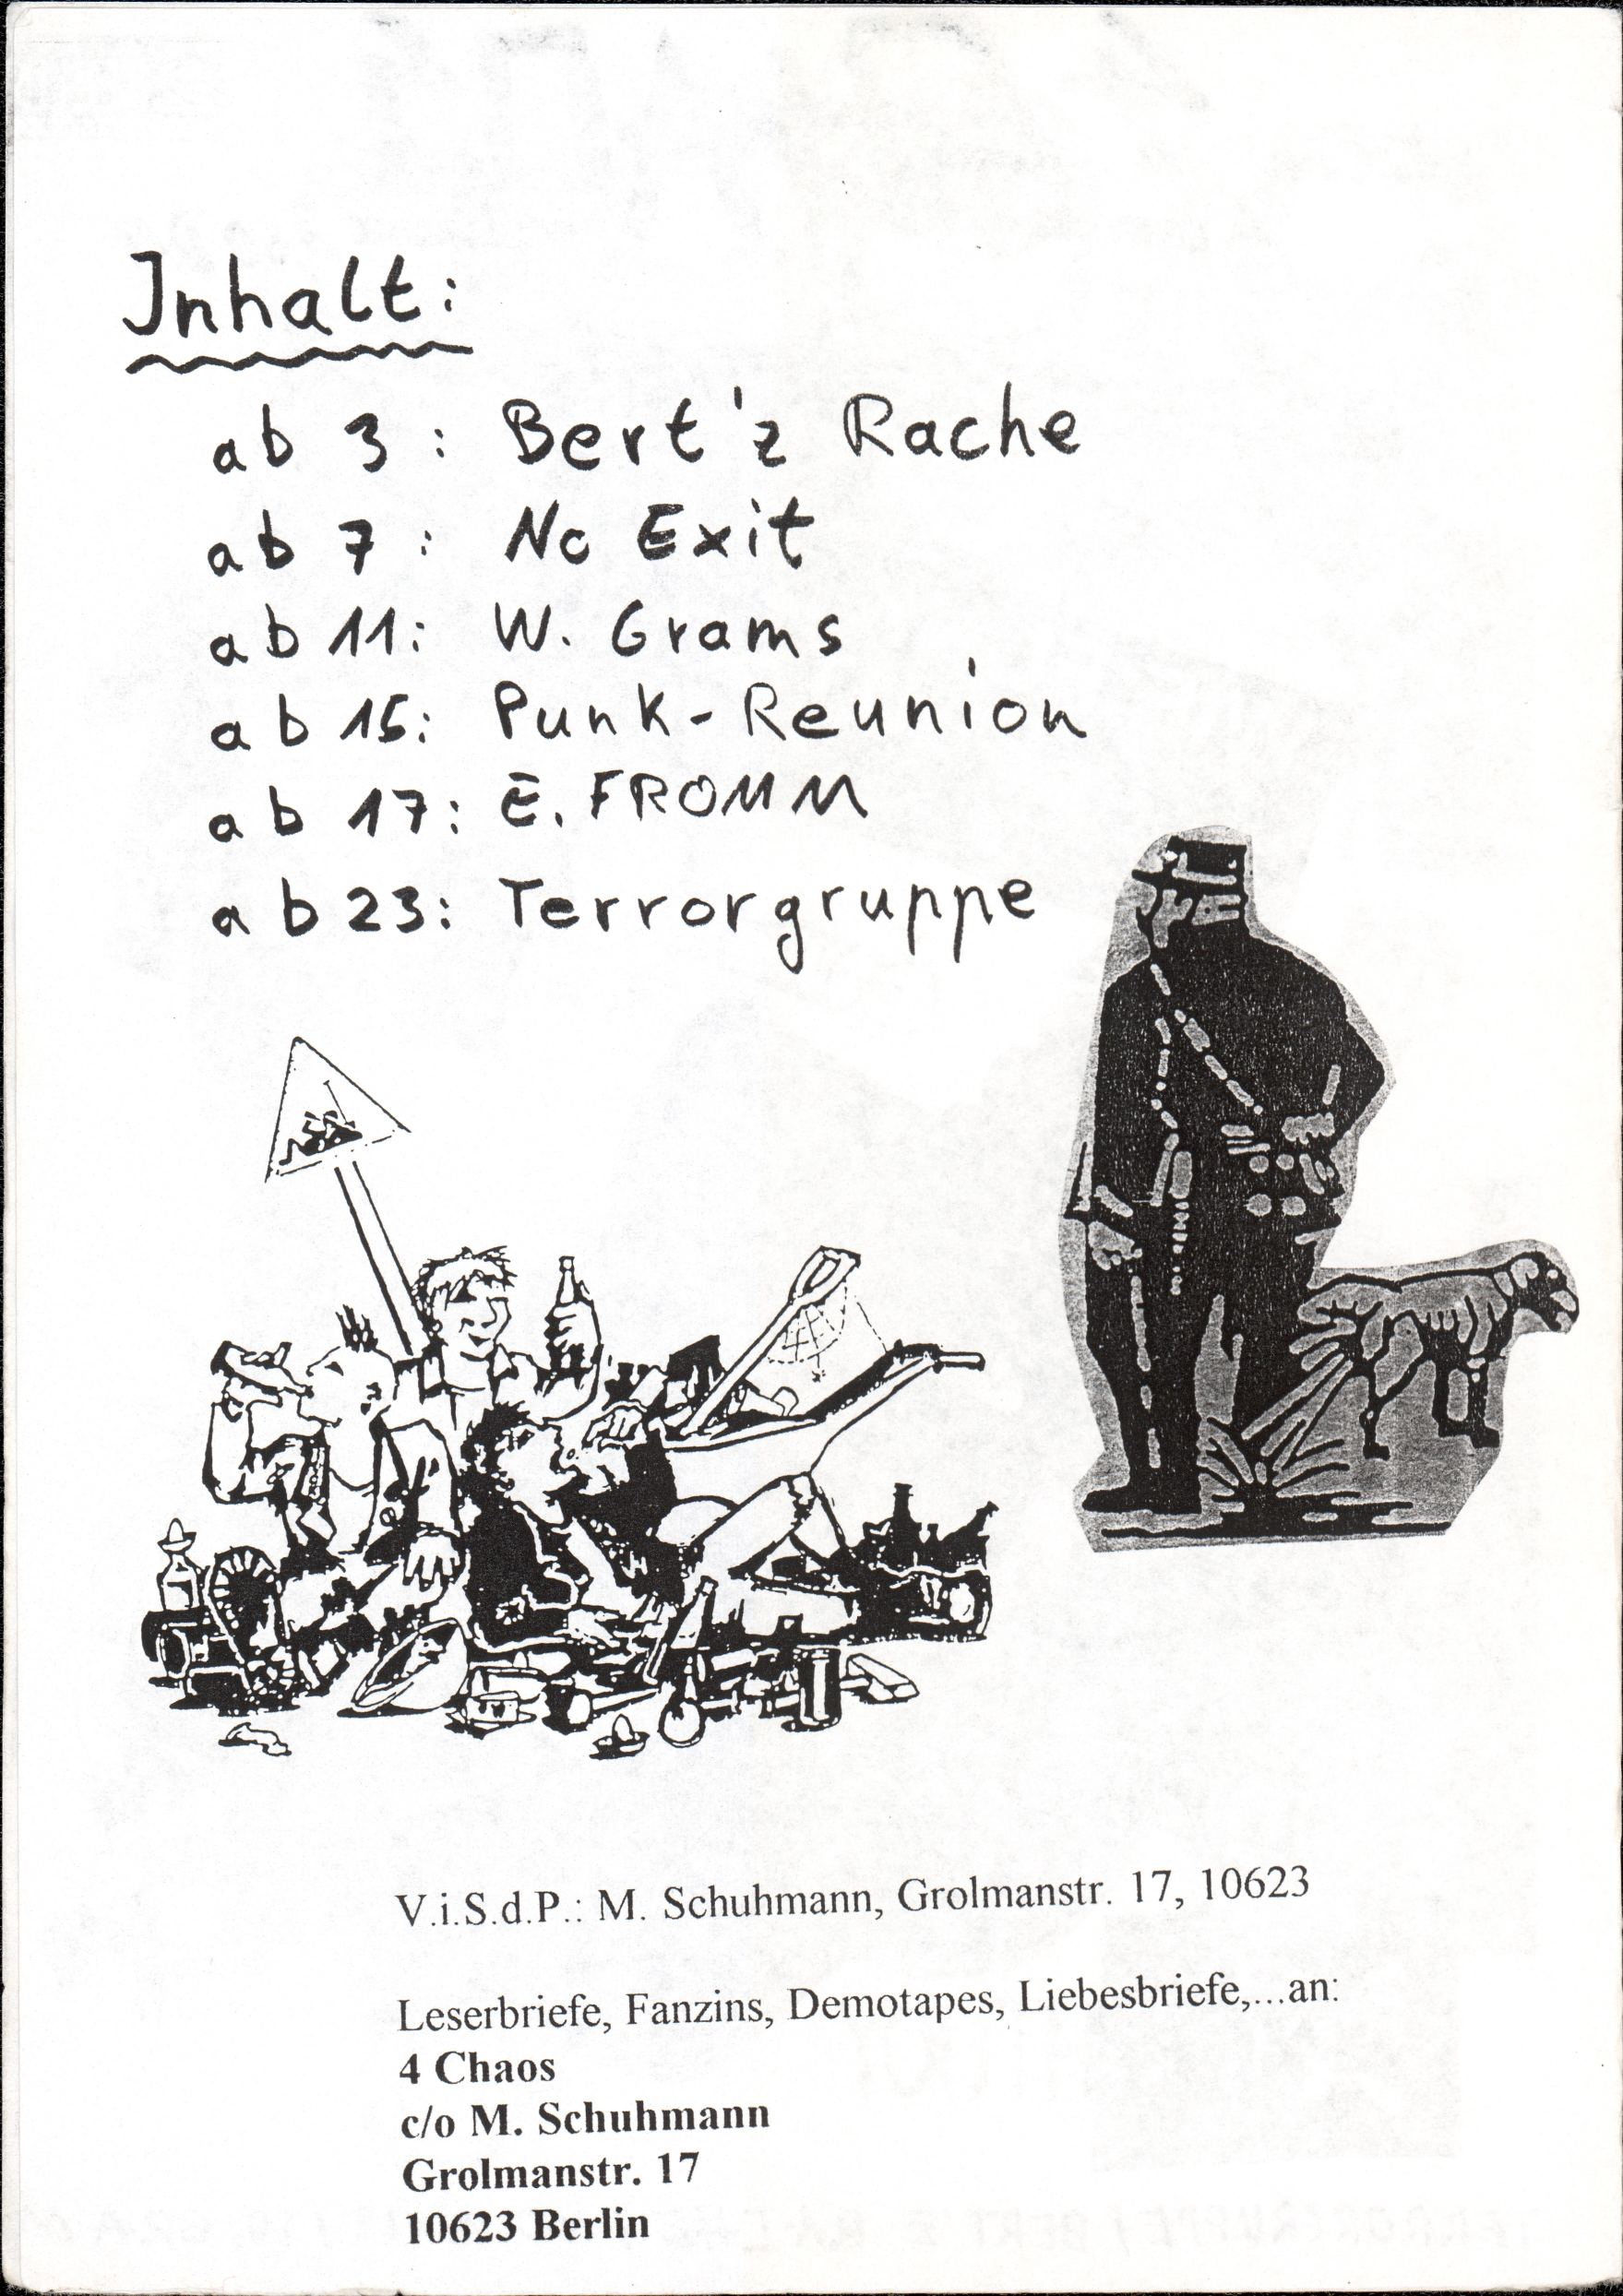 Inhalt:
ab 3: Bert'z Rache
ab 7: No Exit
ab 11: W. Grams
ab 15: Punk-Reunion
ab 17: E. FROMM
ab 23: Terrorgruppe
V.i.S.d.P.: M. Schuhmann, Grolmanstr. 17, 10623
Leserbriefe, Fanzins, Demotapes, Liebesbriefe,...an:
4 Chaos
c/o M. Schuhmann
Grolmanstr. 17
10623 Berlin